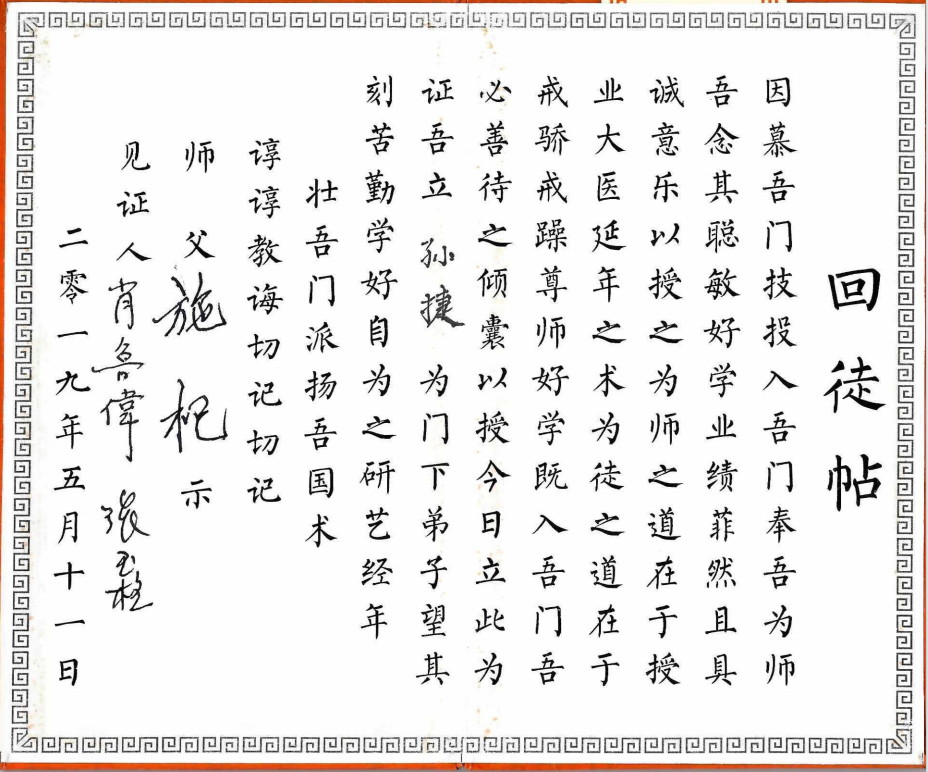 回徒帖
因慕吾门技投入吾门奉吾为师
吾念其聪敏好学业绩菲然且具
诚意乐以授之为师之道在于授
业大医延年之术为徒之道在于
戒骄戒躁尊师好学既入吾门吾
必善待之倾囊以授今日立此为
证吾立 孙捷 为门下弟子望其
刻苦勤学好自为之研艺经年
壮吾门派扬吾国术
谆谆教诲切记切记
师父施杞示
见证人肖鲁偉 張玉柱
二零一九年五月十一日